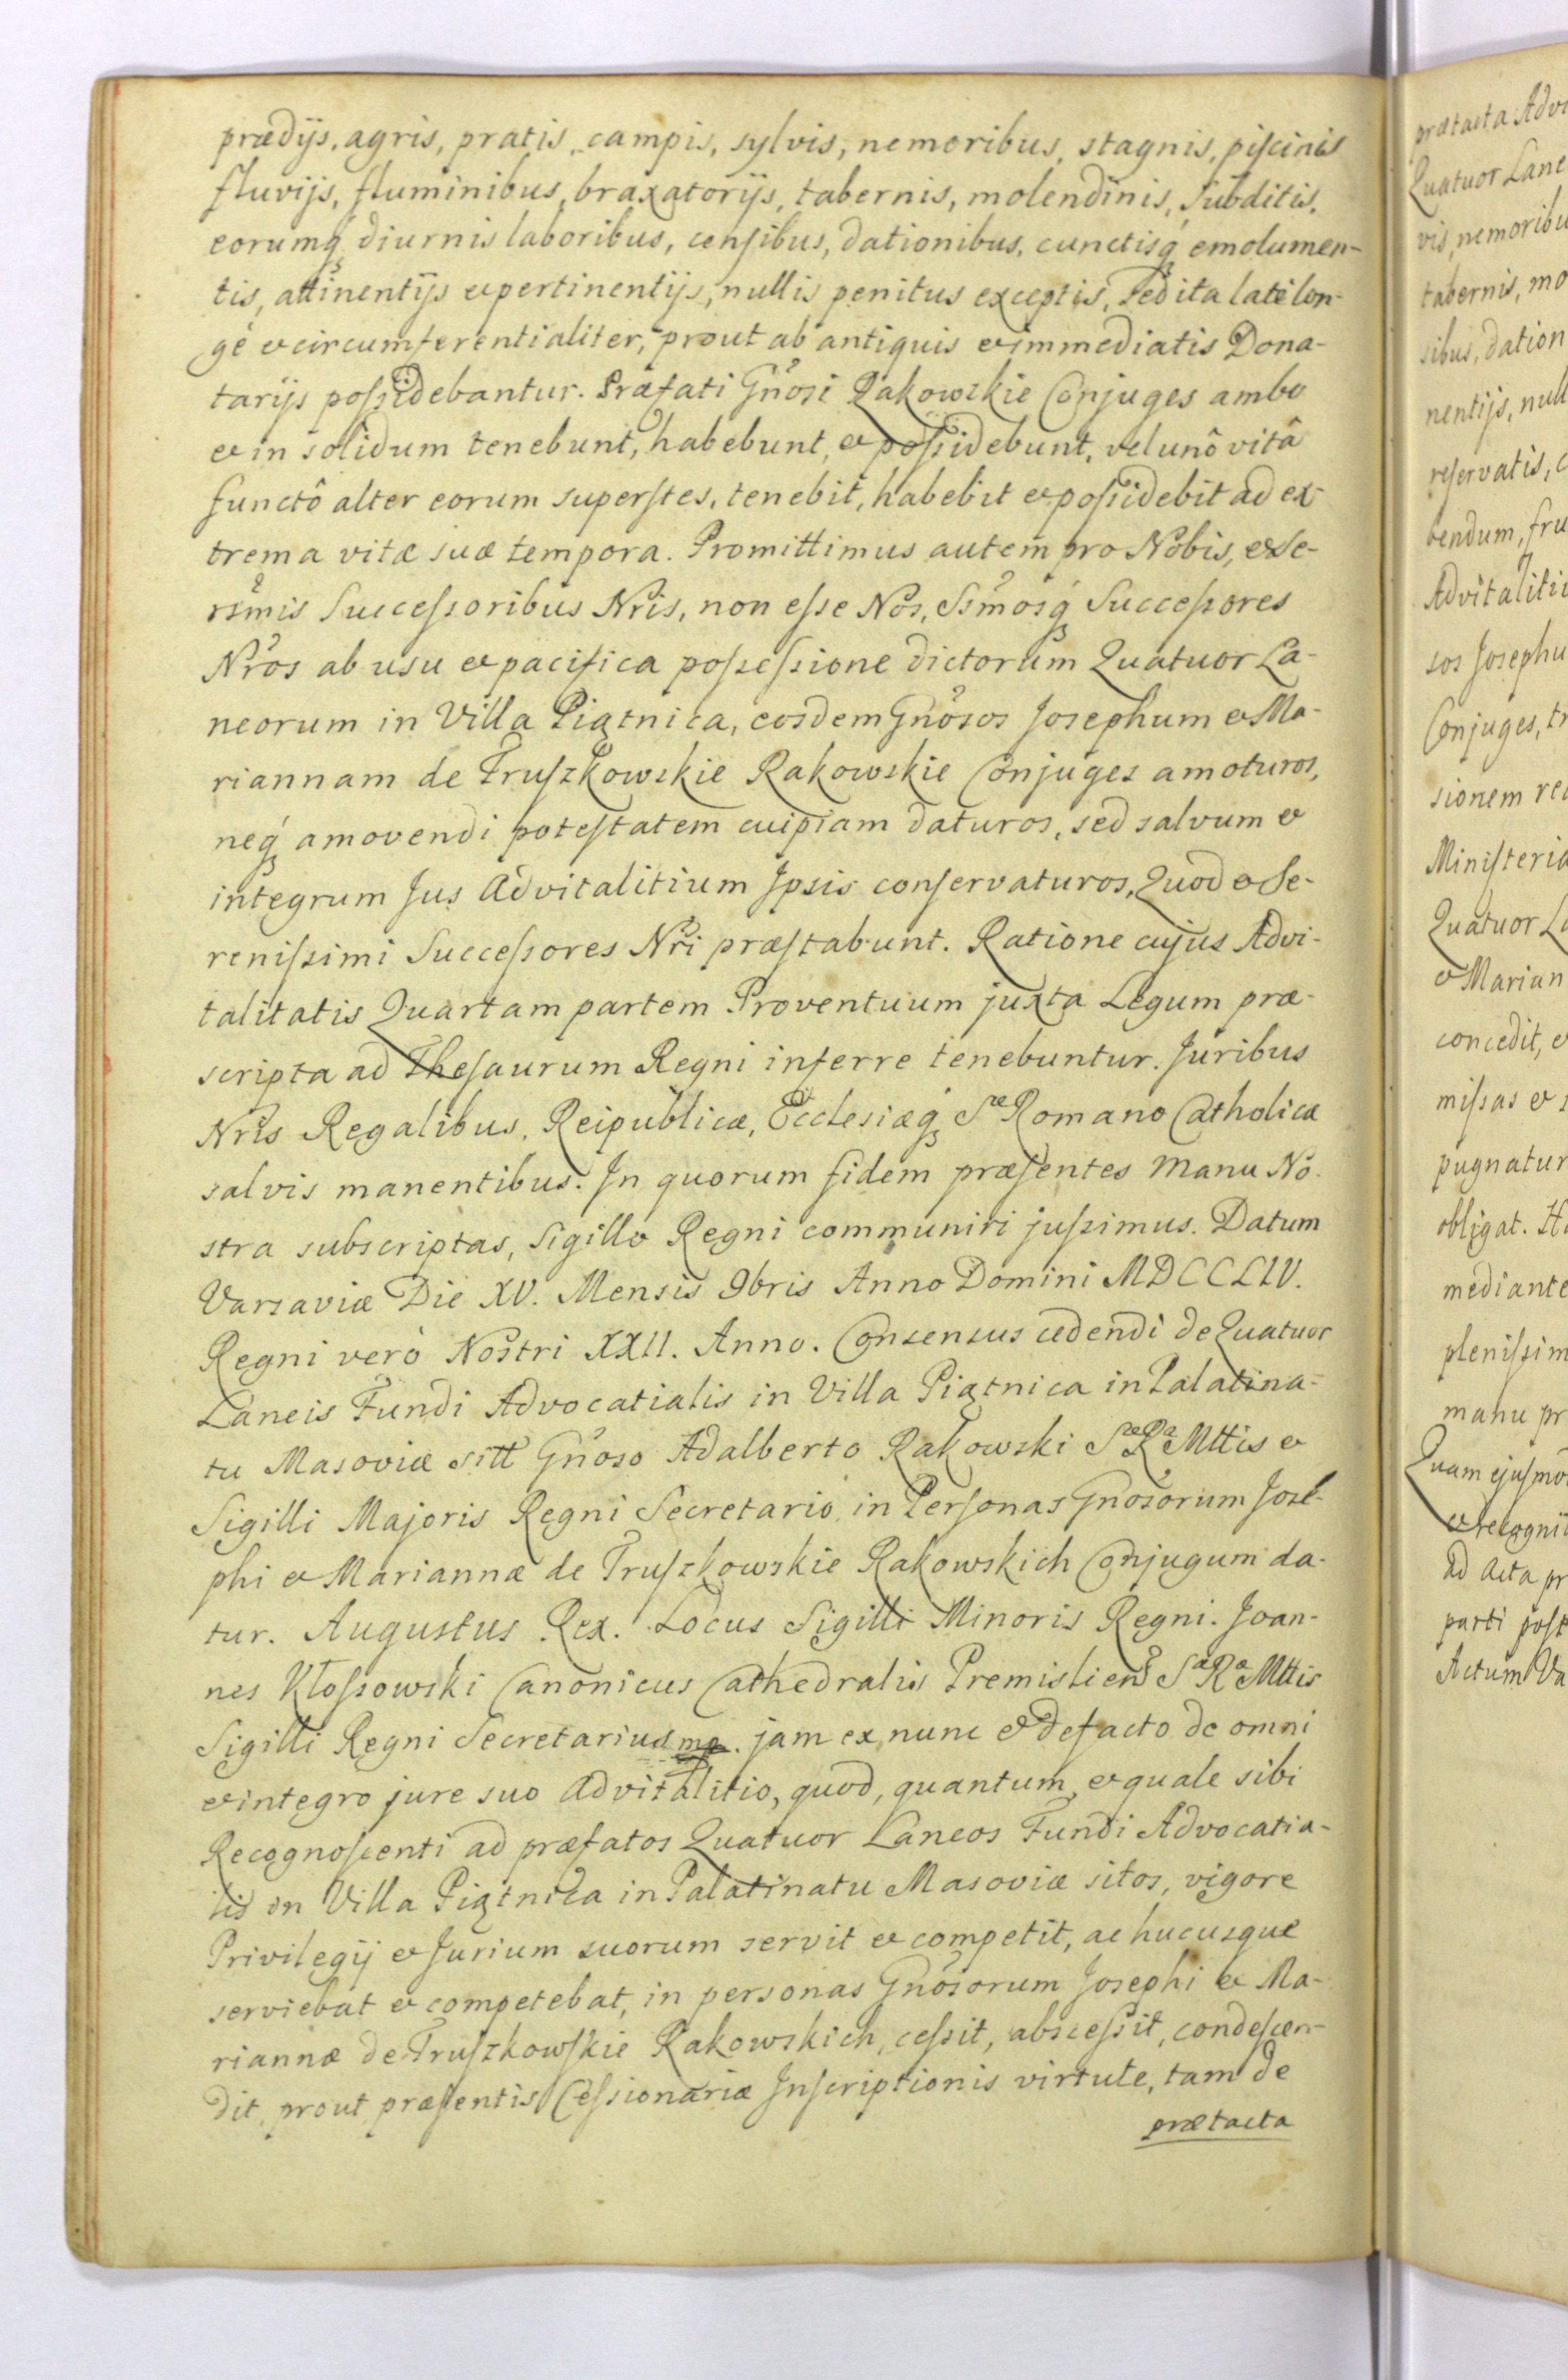 prædijs, agris, pratis, campis, sylvis, nemoribus, stagnis, piscinis
fluvijs, fluminibus, braxatorijs, tabernis, molendinis, Subditis,
eorumq́ diurnis laboribus, censibus, dationibus, cunctisq́ emolumen-
tis, attinentijs et pertinentijs, nullis penitus exceptis, Sed ita latè lon-
gè et circumferentialiter, prout ab antiquis et immediatis Dona-
tarijs possidebantur. Præfati Gnosi Rakowskie Conjuges ambo
et in solidum tenebunt, habebunt, et possidebunt, vel unô vitâ
functô alter eorum superstes, tenebit, habebit et possidebit ad ex-
trema vitæ suæ tempora. Promittimus autem pro Nobis, et Se-
rsmis Successoribus Nris, non esse Nos, Ssmosq́ Successores
Nros ab usu et pacifica possessione dictorum Quatuor La-
neorum in Villa Piątnica, eosdem Gnosos Josephum et Ma-
riannam de Truszkowskie Rakowskie Conjuges amoturos,
neq́ amovendi potestatem cuipiam daturos, sed salvum et
integrum Jus Advitalitium Ipsis conservaturos, Quod et Se-
renissimi Successores Nri præstabunt. Ratione cujus Advi-
talitatis Quartam partem Proventuum juxta Legum præ-
scripta ad Thesaurum Regni inferre tenebuntur. Juribus
Nris Regalibus, Reipublicæ, Ecclesiæq́ Sæ Romano Catholicæ
salvis manentibus. In quorum fidem præsentes Manu No-
stra subscriptas, Sigillo Regni communiri jussimus. Datum
Varsaviæ Die XV. Mensis 9bris Anno Domini MDCCLIV.
Regni verò Nostri XXII. Anno. Consensus cedendi de Quatuor
Laneis Fundi Advocatialis in Villa Piątnica in Palatina-
tu Masoviæ sitt Gnoso Adalberto Rakowski Sæ Ræ Mttis et
Sigilli Majoris Regni Secretario in Personas Gnosorum Jose-
phi et Mariannæ de Truszkowskie Rakowskich Conjugum da-
tur. Augustus Rex. Locus Sigilli Minoris Regni. Joan-
nes Kłossowski Canonicus Cathedralis Premisliens Sæ Ræ Mttis
Sigilli Regni Secretarius mp. jam ex nunc et de facto de omni
et integro jure suo Advitalitio, quod, quantum, et quale sibi
Recognoscenti ad præfatos Quatuor Laneos Fundi Advocatia-
lis in Villa Piątnica in Palatinatu Masoviæ sitos, vigore
Privilegij et Jurium suorum servit et competit, ac hucusque
serviebat et competebat, in personas Gnosorum Josephi et Ma-
riannæ de Truszkowskie Rakowskich, cessit, abscessit, condescen-
dit, prout præsentis Cessionariæ Inscriptionis virtute, tam de
prætacta
prætacta Adv
Quatuor Lane
vis, nemoribu
tabernis, mo
sibus, dation
nentijs, null
reservatis, c
bendum, fru
Advitaliti
sos Josephu
Conjuges, tr
sionem re
Ministeria
Quatuor La
et Marian
concedit, e
missas et
pugnatur
obligat.
mediante
plenissim
manu pr
Quam ejusmo
et recogni
ad Acta pr
parti post
Actum Va